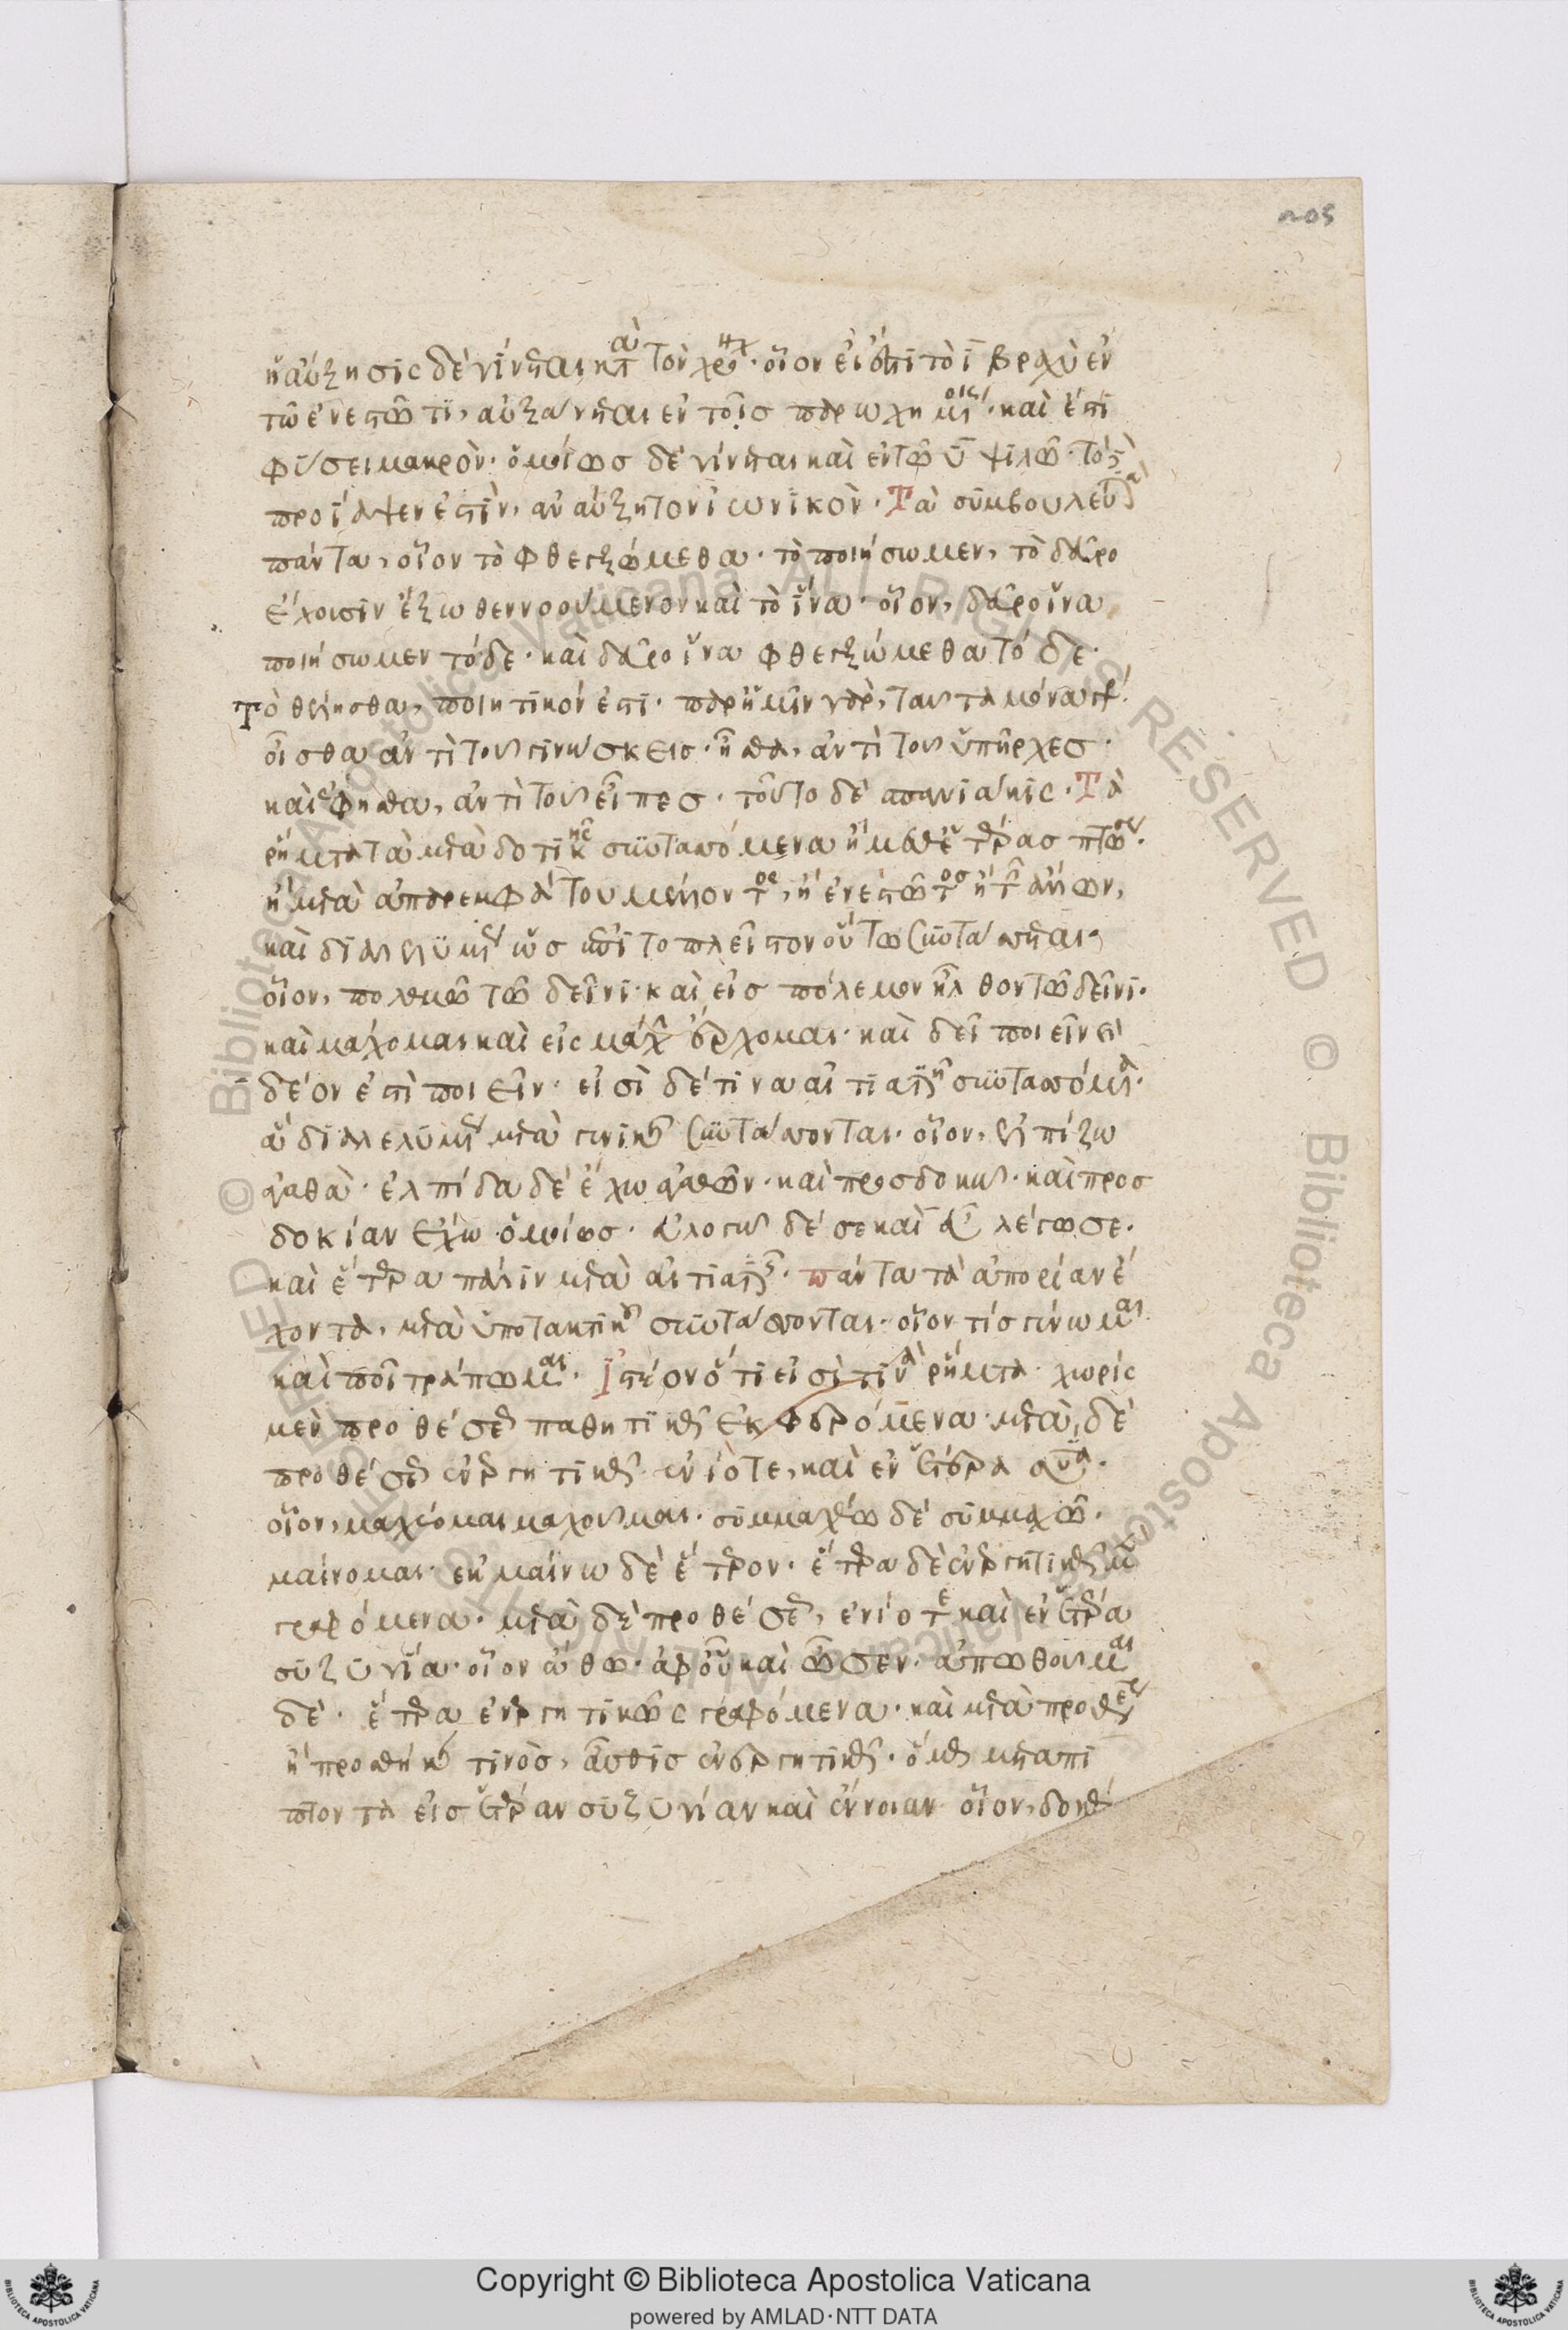 205
ἡ αὔξησις δὲ γίνεται κατὰ τὸν χρόνον· οἷον εἰ ἐστὶ τὸ ῑ βραχὺ ἐν
τῷ ἐνεστῶτι, αὐξάνεται ἐν τοῖς παρῳχημένοις· καὶ ἔστι
φύσει μακρόν· ὁμοίως δὲ γίνεται καὶ ἐν τῷ ῡ ψιλῷ· τὸ
προίαψεν ἐστὶν, ἀναύξητον ἰωνικόν· Τὰ συμβουλευτικὰ
πάντα, οἷον τὸ φθεγξώμεθα· τὸ ποιήσωμεν, τὸ δεῦρο
ἔχουσιν ἔξωθεν νοούμενον καὶ τὸ ἵνα· οἷον, δεῦρο ἵνα
ποιήσωμεν τόδε· καὶ δεῦρο ἵνα φθεγξώμεθα τόδε·
Τὸ θείησθα, ποιητικόν ἐστι· παρ' ἡμῖν γὰρ, ταῦτα μόνα
οἶσθα ἀντὶ τοῦ γινώσκεις· ἦσθα, ἀντὶ τοῦ ὑπῆρχες·
καὶ ἔφησθα, ἀντὶ τοῦ εἶπες· τοῦτο δὲ σπανιάκις· Τὰ
ῥήματα τὰ μετὰ δοτικῆς συντασσόμενα ἢ μεθ' ἑτέρας πτώσεως·
ἢ μετὰ ἀπαρεμφάτου μέλλοντος, ἢ ἐνεστῶτος ἢ τῶν ἄλλων,
καὶ διαλελυμένως ὡς ἐπὶ τὸ πλεῖστον οὕτω συντάσσεται·
οἷον, πολεμῶ τῷ δεῖνι· καὶ εἰς πόλεμον ἦλθον τῷ δεῖνι·
καὶ μάχομαι καὶ εἰς μάχην ἔρχομαι· καὶ δεῖ ποιεῖν καὶ
δέον ἐστὶ ποιεῖν· εἰσὶ δέ τινα αἰτιατικῇ συντασσόμενα·
ἃ διαλελυμένως μετὰ γενικῆς συντάσσονται· οἷον, ἐλπίζω
ἀγαθὰ· ἐλπίδα δὲ ἔχω ἀγαθῶν· καὶ προσδοκῶ· καὶ προσ
δοκίαν ἔχω ὁμοίως· εὐλογῶ δέ σε καὶ εὖ λέγω σε·
καὶ ἕτερα πάλιν μετὰ αἰτιατικῆς· πάντα τὰ ἀπορίαν ἔ
χοντα, μετὰ ὑποτακτικοῦ συντάσσονται· οἷον τίς γένωμαι
καὶ ποῖ τράπωμαι· Ἰστέον ὅτι εἰσὶ τινὰ ῥήματα χωρὶς
μὲν προθέσεως παθητικῶς ἐκφερόμενα· μετὰ δὲ
προθέσεως ἐνεργητικῶς· ἐνίοτε, καὶ ἐν ἑτέρα συζυγία·
οἷον, μαχέομαι μαχοῦμαι· συμμαχέω δὲ συμμαχῶ·
μαίνομαι· ἐκμαίνω δὲ ἕτερον· ἕτερα δὲ ἐνεργητικῶς μὲν
γραφόμενα· μετὰ δὲ προθέσεως, ἐνίοτε καὶ ἐν ἑτέρα
συζυγία· οἷον ὤθω· ἀφ' οὗ καὶ ὦσεν· ἀπωθοῦμαι
δὲ· ἕτερα ἐνεργητικῶς γραφόμενα· καὶ μετὰ προθέσεως
ἢ προσθήκης τινός, αὖθις ἐνεργητικῶς· ὅμως μεταπί
πτοντα εἰς ἑτέραν συζυγίαν καὶ ἔννοιαν οἷον, δοκῶ